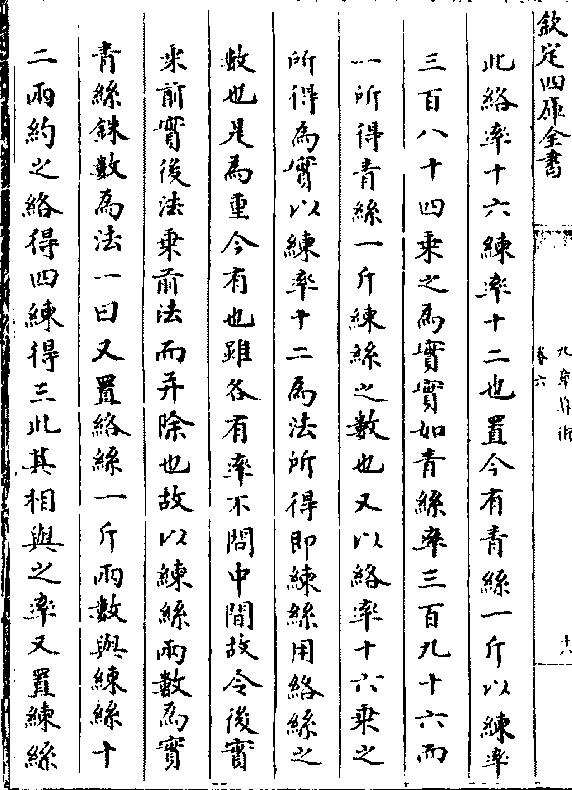 欽定四庫全書
九章算術
卷六
十六
此絡率十六練率十二也置今有青絲一斤以練率
三百八十四乘之為實實如青絲率三百九十六而
一所得青絲一斤練絲之數也又以絡率十六乘之
所得為實以練率十二為法所得即練絲用絡絲之
數也是為重今有也雖各有率不問中間故令後實
乘前實後法乘前法而并除也故以練絲兩數為實
青絲銖數為法一曰又置絡絲一斤兩數與練絲十
二兩約之絡得四練得三此其相與之率又置練絲